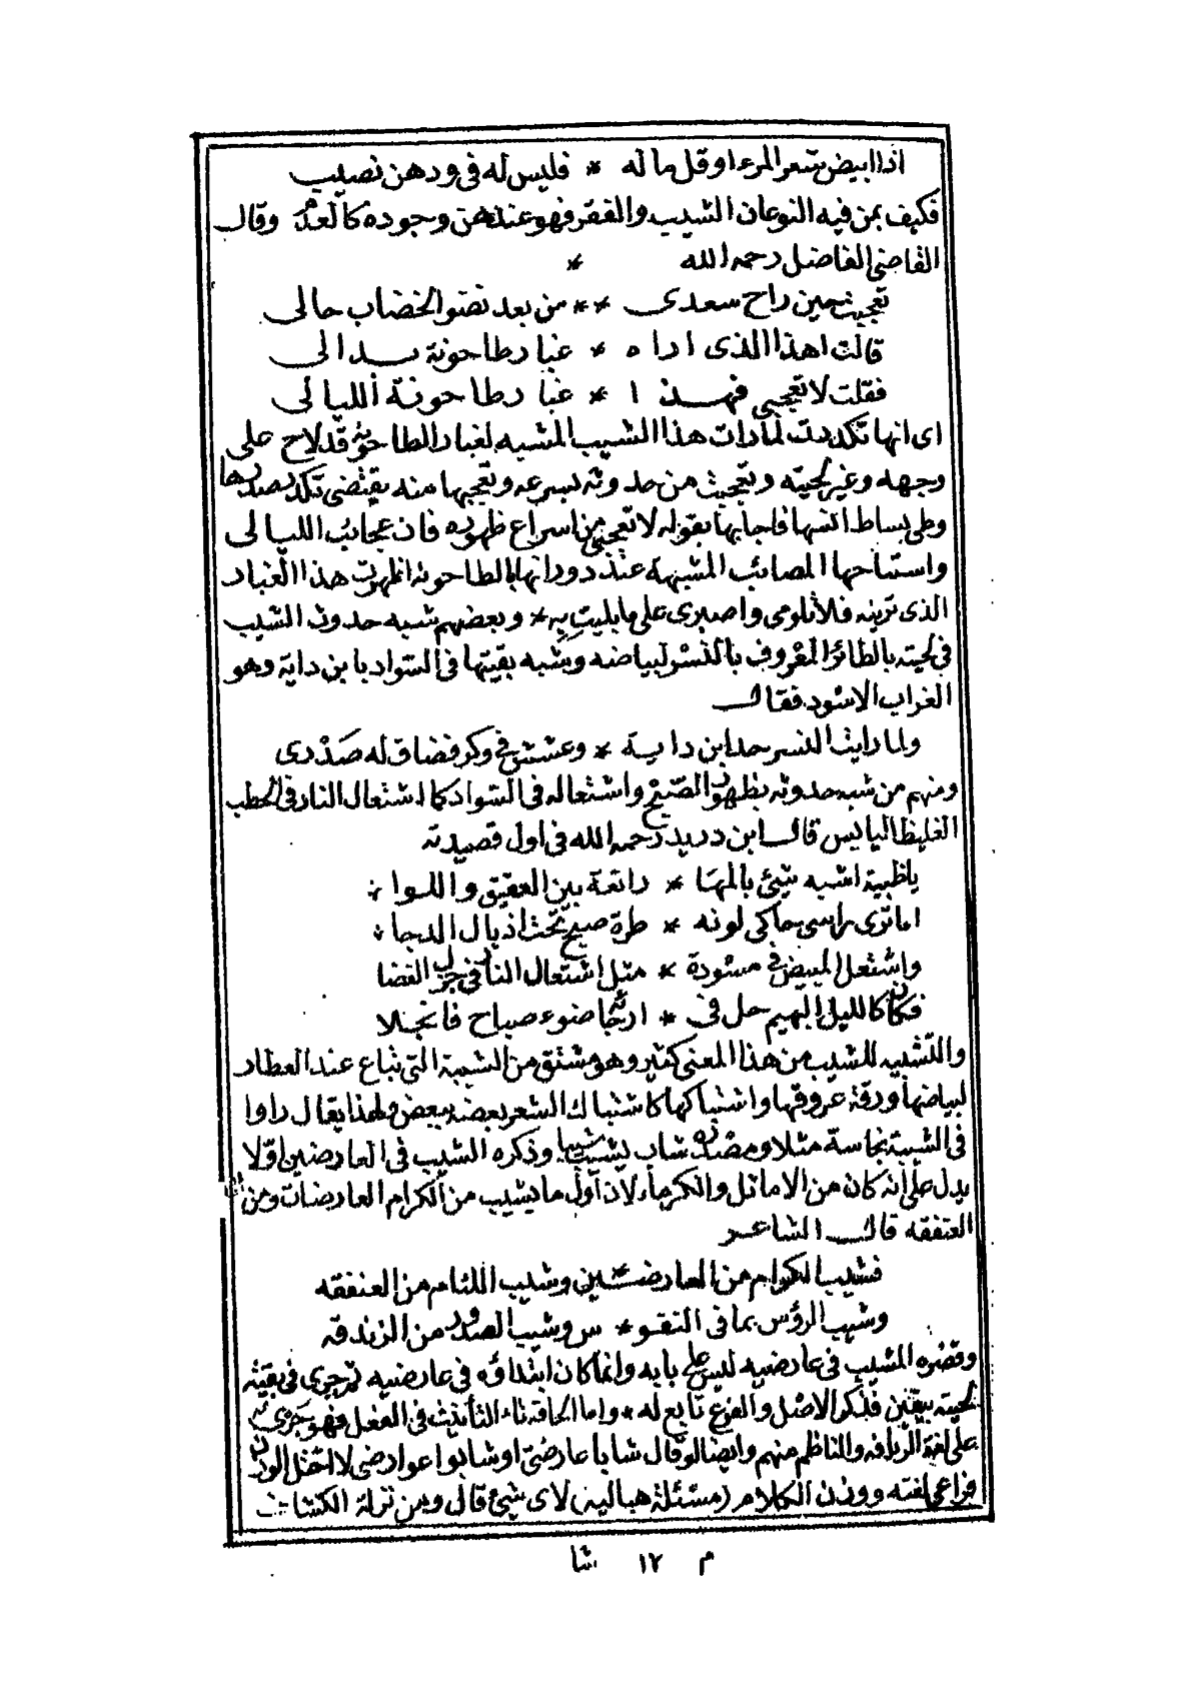 اذا ابيض شعر المرء او قل ماله * فليس له فى ودهن نصيب
فكيف بمن فيه النوعان الشيب والفقر فهو عندهن وجوده كالعدم وقال
القاضى الفاضل رحمه الله *
تعجبت حين راح سعدى ** من بعد نضو الخضاب حالى
قالت اهذا الذى اراه * غبار طاحونة بدالى
فقلت لا تعجبى فهذا * غبار طاحونة الليالى
اى انها تكدرت لما رات هذا الشيب المشبه لغبار الطاحونة قد لاح على
وجهه وغير لحيته وتعجبت من حدوثه بسرعه وتعجبها منه يقتضى تكدر صدرها
وطى بساط انسها فاجابها بقوله لا تعجبى من اسراع ظهوره فان عجائب الليالى
واستناحها المصائب المشبهة عند دورانها بالطاحونة اظهرت هذا الغبار
الذى ترينه فلا تلومى واصبرى على ما بليت به * وبعضهم شبه حدوث الشيب
فى لحيته بالطائر المعروف بالنسر لبياضه وشبه بقيتها فى السواد بابن داية وهو
الغراب الاسود فقال
ولما رايت النسر حد ابن داية * وعشش فى وكر فضاق له صدرى
ومنهم من شبه حدوثه بظهور الصبح واشتعاله فى السواد كاشتعال النار فى الحطب
الغليظ اليابس قال ابن دريد رحمه الله فى اول قصيدته
ياظبية اشبه شيئ بالمها * راتعة بين العقيق واللوا
اما ترى راسى حاكى لونه * طرة صبح تحت اذيال الدجا
واشتعل المبيض فى مسودة * مثل اشتعال النار فى جزل الغضا
فكان كالليل البهيم حل فى * ارجائه ضوء صباح فانجلا
والتشبيه للشيب من هذا المعنى كثير وهو مشتق من الشيبة التى تباع عند العطار
لبياضها ورقة عروقها واشتباكها كاشتباك الشعر بعضه ببعض ولهذا يقال راوا
فى الشيبة نجاسة مثلا ومصدره شاب يشيب شيبا وذكره الشيب فى العارضين اولا
يدل على انه كان من الاماثل والكرماء لان اول ما يشيب من الكرام العارضات ومن
العنفقه قال الشاعر
فشيب الكرام من العارضـ * ـين وشيب اللئام من العنفقه
وشيب الرؤس بما فى النفو * س وشيب الصدور من الزندقه
وقصره المشيب فى عارضيه ليس على بابه وانما كان ابتداؤه فى عارضيه ثم جرى فى بقية
لحيته بيقين فذكر الاصل والفرع تابع له * واما الحاقه تاء التأنيث فى الفعل فهو جرى
على لغة الريافه والناظم منهم وايضا لو قال شابا عارضى او شابوا عوارضى لا اختل الوزن
فراعى لغته ووزن الكلام (مسئلة هباليه) لاى شيئ قال ومن نزلة الكشاف
م ١٢ شا